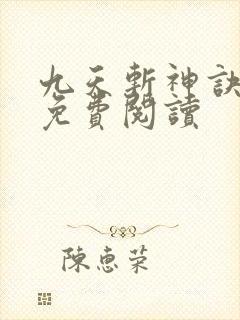 九天斬神訣
免費閱讀
陳惠荣